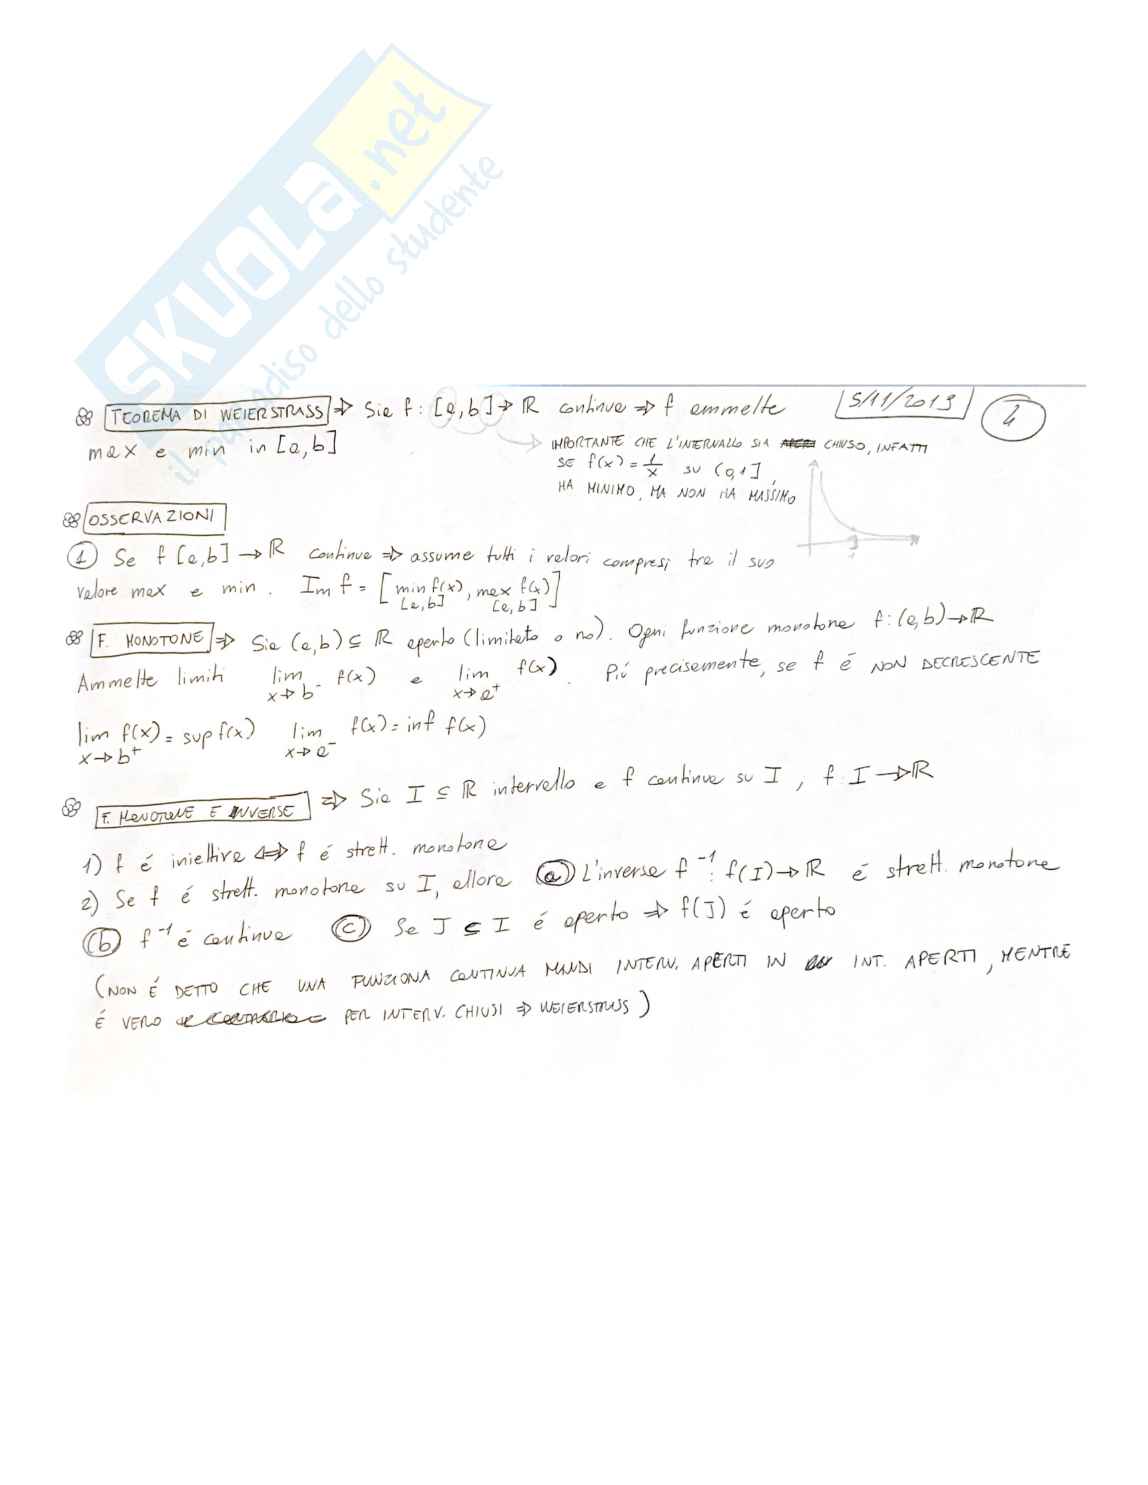 SKUOLA.net
il paradiso dello studente
TEOREMA DI WEIERSTRASS ⇒ Sia f: [a,b] → ℝ continua ⇒ f ammette
5/11/2019
4
max e min in [a,b]
IMPORTANTE CHE L'INTERVALLO SIA CHIUSO, INFATTI
SE f(x) = 1/x SU (0,1],
HA MINIMO, MA NON HA MASSIMO
OSSERVAZIONI
① Se f [a,b] → ℝ continua ⇒ assume tutti i valori compresi tra il suo
valore max e min. Im f = [min f(x), max f(x)]
[a,b] [a,b]
F. MONOTONE ⇒ Sia (a,b) ⊆ ℝ aperto (limitato o no). Ogni funzione monotona f: (a,b) → ℝ
Ammette limiti lim x→b⁻ f(x) e lim x→a⁺ f(x). Piú precisamente, se f é NON DECRESCENTE
lim x→b⁺ f(x) = sup f(x) lim x→a⁻ f(x) = inf f(x)
F. MONOTONE E INVERSE ⇒ Sia I ⊆ ℝ intervallo e f continua su I, f: I → ℝ
1) f é iniettiva ⇔ f é strett. monotona
2) Se f é strett. monotona su I, allora ⓐ L'inversa f⁻¹: f(I) → ℝ é strett. monotona
ⓑ f⁻¹ é continua ⓒ Se J ⊆ I é aperto ⇒ f(J) é aperto
(NON É DETTO CHE UNA FUNZIONA CONTINUA MANDI INTERV. APERTI IN INT. APERTI, MENTRE
É VERO PER INTERV. CHIUSI ⇒ WEIERSTRASS)